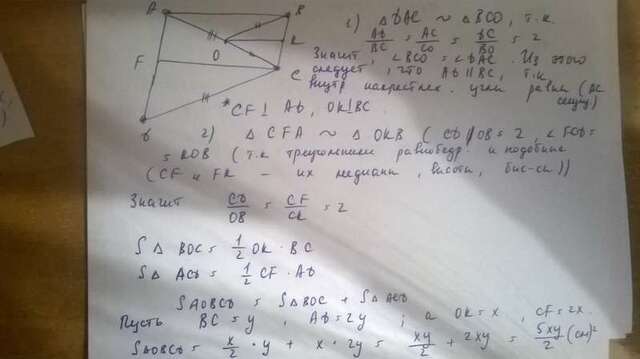 A
B
F
K
O
C
D
1) △DAC ~ △BCO, т.к.
AD/BC = AC/CO = DC/BO = 2
Значит, ∠BCO = ∠DAC. Из этого
следует, что AD || BC, т.к.
внутр накрестлеж. углы равны (AC
секущ.)
*CF⊥ AD, OK⊥BC.
2) △ CFA ~ △ OKB ( CD/OB = 2, ∠FCD =
= KOB (т.к треугольники равнобедр. и подобные
(CF и FK – их медианы, высоты, бис-сы))
Значит CD/OB = CF/CK = 2
S△ BOC = 1/2 OK · BC
S△ ACD = 1/2 CF · AD
SAOBCD = S△BOC + S△ACD
Пусть BC = y, AD = 2y ; а OK = x, CF = 2x.
SAOBCD = x/2 · y + x · 2y = xy/2 + 2xy = 5xy/2 (см)²